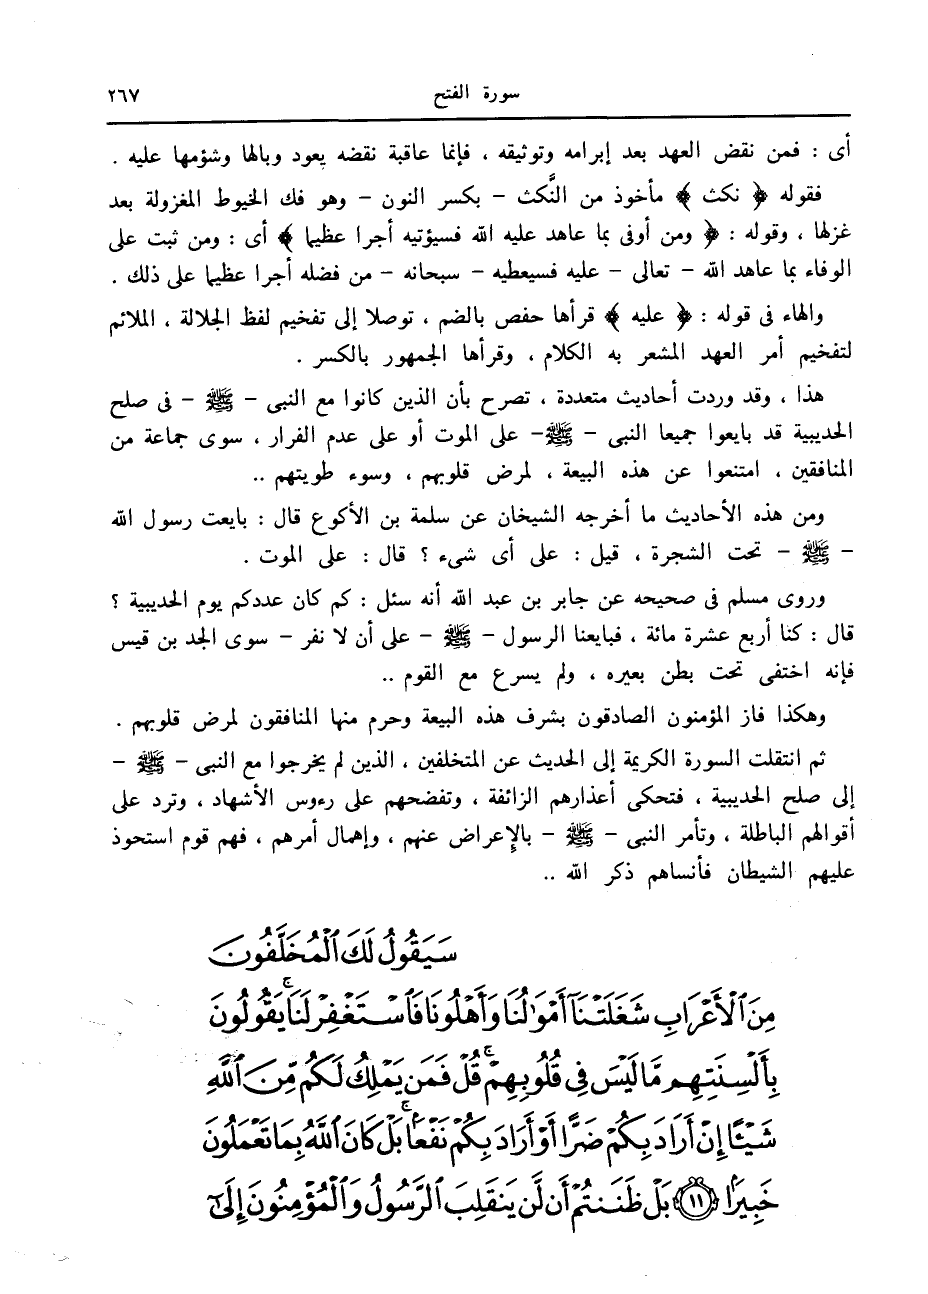 سورة الفتح ٢٦٧
أى : فمن نقض العهد بعد إبرامه وتوثيقه ، فإنما عاقبة نقضه يعود وبالها وشؤمها عليه .
فقوله ﴿ نكث ﴾ مأخوذ من النَّكث – بكسر النون – وهو فك الخيوط المغزولة بعد
غزلها ، وقوله : ﴿ ومن أوفى بما عاهد عليه الله فسيؤتيه أجرا عظيما ﴾ أى : ومن ثبت على
الوفاء بما عاهد الله – تعالى – عليه فسيعطيه – سبحانه – من فضله أجرا عظيما على ذلك .
والهاء فى قوله : ﴿ عليه ﴾ قرأها حفص بالضم ، توصلا إلى تفخيم لفظ الجلالة ، الملائم
لتفخيم أمر العهد المشعر به الكلام ، وقرأها الجمهور بالكسر .
هذا ، وقد وردت أحاديث متعددة ، تصرح بأن الذين كانوا مع النبى – ﷺ – فى صلح
الحديبية قد بايعوا جميعا النبى – ﷺ– على الموت أو على عدم الفرار ، سوى جماعة من
المنافقين ، امتنعوا عن هذه البيعة ، لمرض قلوبهم ، وسوء طويتهم ..
ومن هذه الأحاديث ما أخرجه الشيخان عن سلمة بن الأكوع قال : بايعت رسول الله
– ﷺ – تحت الشجرة ، قيل : على أى شىء ؟ قال : على الموت .
وروى مسلم فى صحيحه عن جابر بن عبد الله أنه سئل : كم كان عددكم يوم الحديبية ؟
قال : كنا أربع عشرة مائة ، فبايعنا الرسول – ﷺ – على أن لا نفر – سوى الجد بن قيس
فإنه اختفى تحت بطن بعيره ، ولم يسرع مع القوم ..
وهكذا فاز المؤمنون الصادقون بشرف هذه البيعة وحرم منها المنافقون لمرض قلوبهم .
ثم انتقلت السورة الكريمة إلى الحديث عن المتخلفين ، الذين لم يخرجوا مع النبى – ﷺ –
إلى صلح الحديبية ، فتحكى أعذارهم الزائفة ، وتفضحهم على رءوس الأشهاد ، وترد على
أقوالهم الباطلة ، وتأمر النبى – ﷺ – بالإعراض عنهم ، وإهمال أمرهم ، فهم قوم استحوذ
عليهم الشيطان فأنساهم ذكر الله ..
سَيَقُولُ لَكَ ٱلْمُخَلَّفُونَ
مِنَ ٱلْأَعْرَابِ شَغَلَتْنَآ أَمْوَٰلُنَا وَأَهْلُونَا فَٱسْتَغْفِرْ لَنَا ۚ يَقُولُونَ
بِأَلْسِنَتِهِم مَّا لَيْسَ فِى قُلُوبِهِمْ ۚ قُلْ فَمَن يَمْلِكُ لَكُم مِّنَ ٱللَّهِ
شَيْـًٔا إِنْ أَرَادَ بِكُمْ ضَرًّا أَوْ أَرَادَ بِكُمْ نَفْعًۢا ۚ بَلْ كَانَ ٱللَّهُ بِمَا تَعْمَلُونَ
خَبِيرًۢا ١١ بَلْ ظَنَنتُمْ أَن لَّن يَنقَلِبَ ٱلرَّسُولُ وَٱلْمُؤْمِنُونَ إِلَىٰٓ